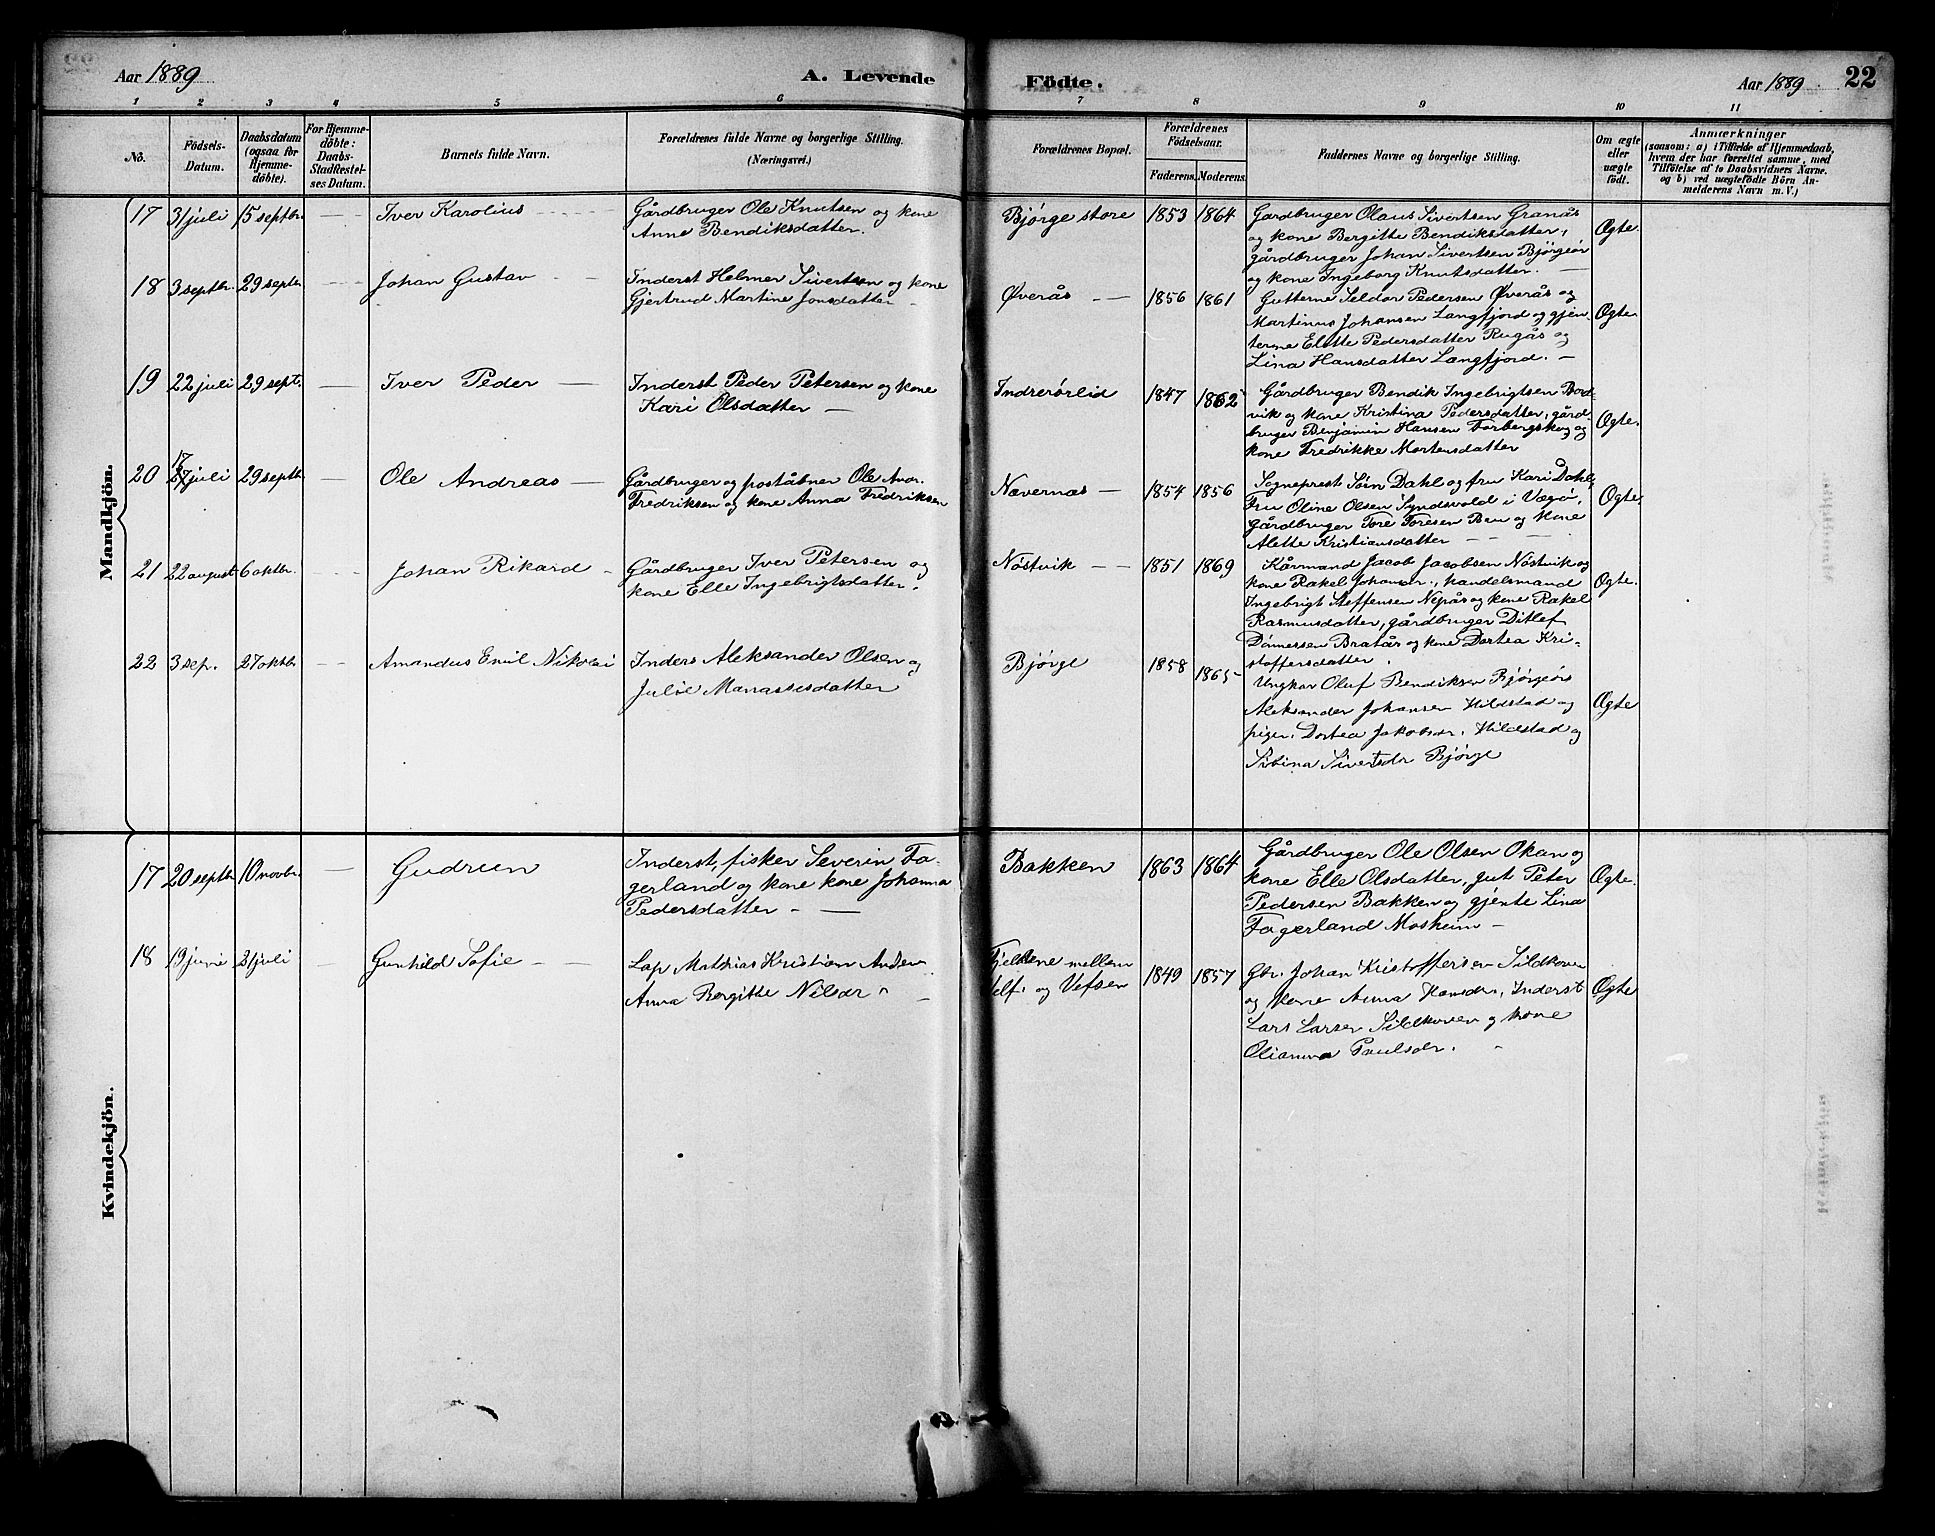 Aar 1889
A. Levende
Födte.
Aar 1889
22
1 2 3 4 5 6 7 8 9 10 11
No.
Födsels-
Datum.
Daabsdatum
(ogsaa for
Hjemme-
döbte).
For Hjemme-
döbte:
Daabs-
Stadfæstel-
ses Datum.
Barnets fulde Navn.
Forældrenes fulde Navne og borgerlige Stilling.
(Næringsvei.)
Forældrenes Bopæl.
Forældrenes
Födselsaar.
Faderens. Moderens.
Faddernes Navne og borgerlige Stilling.
Om ægte
eller
uægte
födt.
Anmærkninger
(saasom: a) i Tilfælde af Hjemmedaab,
hvem der har forrettet samme, med
Tilföielse af to Daabsvidners Navne.
og b) ved uægtefödte Börn An-
melderens Navn m. V.)
Mandkjön.
17 31 juli 15 septbr. — Iver Karolius
Gårdbruger Ole Knutsen og kone
Anne Bendiksdatter.
Bjørge store 1853 1864
Gårdbruger Olaus Sivertsen Granås
og kone Bergitte Bendiksdatter,
gårdbruger Johan Sivertsen Bjørgeör
og kone Ingeborg Knutsdatter. —
Ægte.
18 3 septbr. 29 septbr. — Johan Gustav —
Inderst Helmer Sivertsen og kone
Gjertrud Martine Jonsdatter -
Øverås — 1856 1861
Gutterne Seldor Pedersen Øverås og
Martinus Johansen Langfjord og gjen-
terne Elette Pedersdatter Rugås og
Lina Hansdatter Langfjord. —
Ægte.
19 22 juli 29 sept. — Iver Peder —
Inderst Peder Petersen og kone
Kari Olsdatter —
Indrerørlid 1847 1862
Gårdbruger Bendik Ingebrigtsen Bord-
vik og kone Kristina Pedersdatter, gård-
bruger Benjamin Hansen Forbergskog og
kone Fredrikke Mortensdatter
Ægte.
20 17 juli 29 septbr. — Ole Andreas —
Gårdbruger og poståbner Ole Andr.
Fredriksen og kone Anna Fredriksen
Nævernæs — 1854 1856
Sogneprest Søin Dahl og fru Kari Dahl,
Fru Oline Olsen Syndsvold i Vægø,
Gårdbruger Tore Toresen Breu og kone
Alette Kristiansdatter — —
Ægte.
21 22 august 6 oktbr. — Johan Rikard —
Gårdbruger Iver Petersen og
kone Elle Ingebrigtsdatter.
Nøstvik — 1851 1869
Kårmand Jacob Jacobsen Nøstvik og
kone Rakel Johansdr., handelsmand
Ingebrigt Steffensen Nepås og kone Rakel
Rasmusdatter, gårdbruger Ditlef
Dönnessen Bratås og kone Dortea Kri-
stoffersdatter.
Ægte.
22 3 sep. 27 oktbr. — Amandus Emil Nikolai
Inders Aleksander Olsen og
Julie Manassesdatter
Bjørge 1858 1865
Ungkar Oluf Bendiksen Bjørgeör
Aleksander Johansen Hildstad og
piger. Dortea Jakobsdr. Hildstad og
Sibina Sivertsdr Bjørge
Ægte
Kvindekjön.
17 20 septbr. 10 novbr. — Gudrun
Inderst, fisker Severin Fa-
gerland og kone kone Johanna
Pedersdatter - —
Bakken 1863 1864
Gårdbruger Ole Olsen Okan og
kone Elle Olsdatter, gut Peter
Pedersen Bakken og gjente Lina
Fagerland Mosheim —
Ægte.
18 19 juni 21 juli Gunhild Sofie — —
Lap Mathias Kristian Andersen
Anna Bergitte Nilsdr
Fjeldene mellem
Velf. og Vefsen 1849 1857
Gbr. Johan Kristoffersen Sildkoven
og kone Anna Hansdr, Inderst
Lars Larsen Sildkoven og kone
Olianna Paulsdr.
Ægte